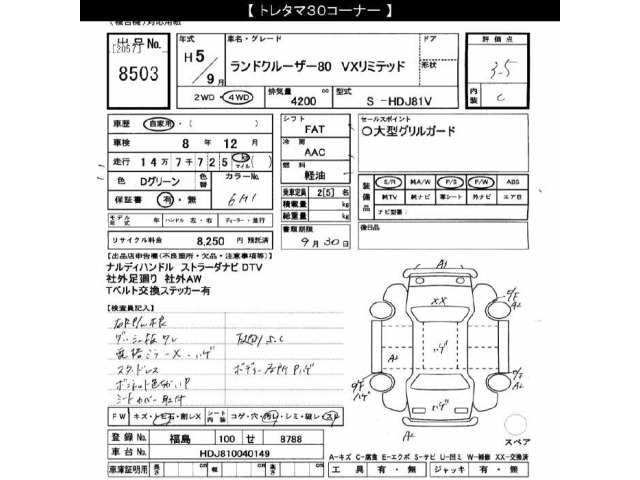 【 トレタマ30コーナー 】
(複合機)対応用紙
出品No. [2057]
8503
年式 H5 / 9月
車名・グレード ランドクルーザー80 VXリミテッド
ドア 形状
評価点 3.5
内装 C
2WD・4WD
排気量 4200 cc
型式 S-HDJ81V
車歴 自家用・( )
車検 8年 12月
走行 14万7千725 km マイル ( )
色 Dグリーン 色替 カラーNo. 6M1
保証書 有・無
シフト FAT
冷房 AAC
燃料 軽油
乗車定員 2[5]名
積載量 kg
総重量 kg
書類期限 9月30日
セールスポイント
○大型グリルガード
装備品 S/R 純A/W P/S P/W ABS
純TV 純ナビ 革シート 外ナビ エア B
ナビ型番:
後日品
モデル年式 年 ハンドル 左・右 ディーラー・並行
リサイクル料金 8,250 円 預託済
【出品店申告欄(不良箇所・欠品・注意事項等)】
ナルディハンドル ストラーダナビ DTV
社外足廻り 社外AW
Tベルト交換ステッカー有
【検査員記入】
スタッドレス
シートカバー取付
FW キズ・トビ石・割レX シート内張 コゲ・穴・汚レ・シミ・破レ・スレ
登録No. 福島 100 せ 8788
車台No. HDJ810040149
車庫証明用 長さ cm 幅 cm 高さ cm
A1
XX
ハゲ
A2
A2
A2
A2
スペア
A-キズ C-腐食 E-エクボ S-サビ U-凹ミ W-補修 XX-交換済
工具 有・無 ジャッキ 有・無